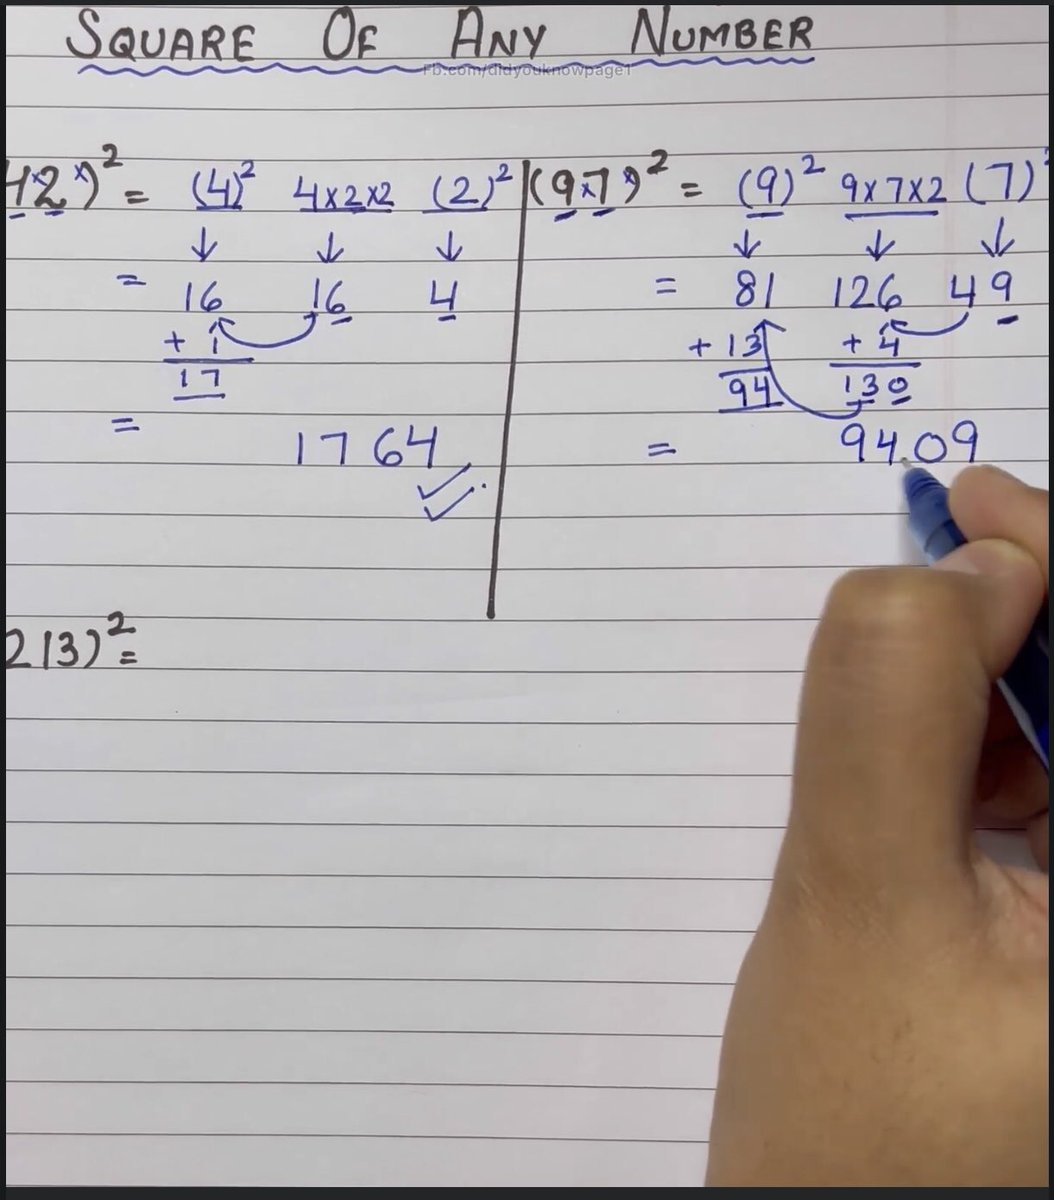 SQUARE OF ANY NUMBER
Fb.com/didyouknowpage1
42)² = (4)² 4×2×2 (2)²
↓ ↓ ↓
= 16 16 4
+ 1
17
= 1764
(9×7)² = (9)² 9×7×2 (7)²
↓ ↓ ↓
= 81 126 49
+ 13 + 4
94 130
= 9409
213)² =